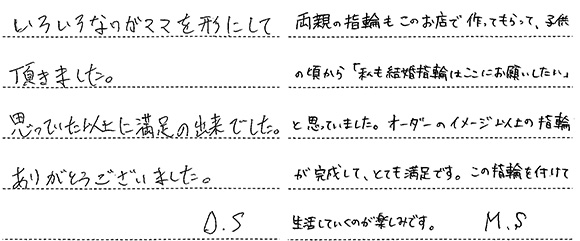 いろいろなのがママを形にして
頂きました。
思っていた以上に満足の出来でした。
ありがとうございました。
D.S
両親の指輪もこのお店で作ってもらって、子供
の頃から「私も結婚指輪はここにお願いしたい」
と思っていました。オーダーのイメージ以上の指輪
が完成して、とても満足です。この指輪を付けて
生活していくのが楽しみです。 M.S